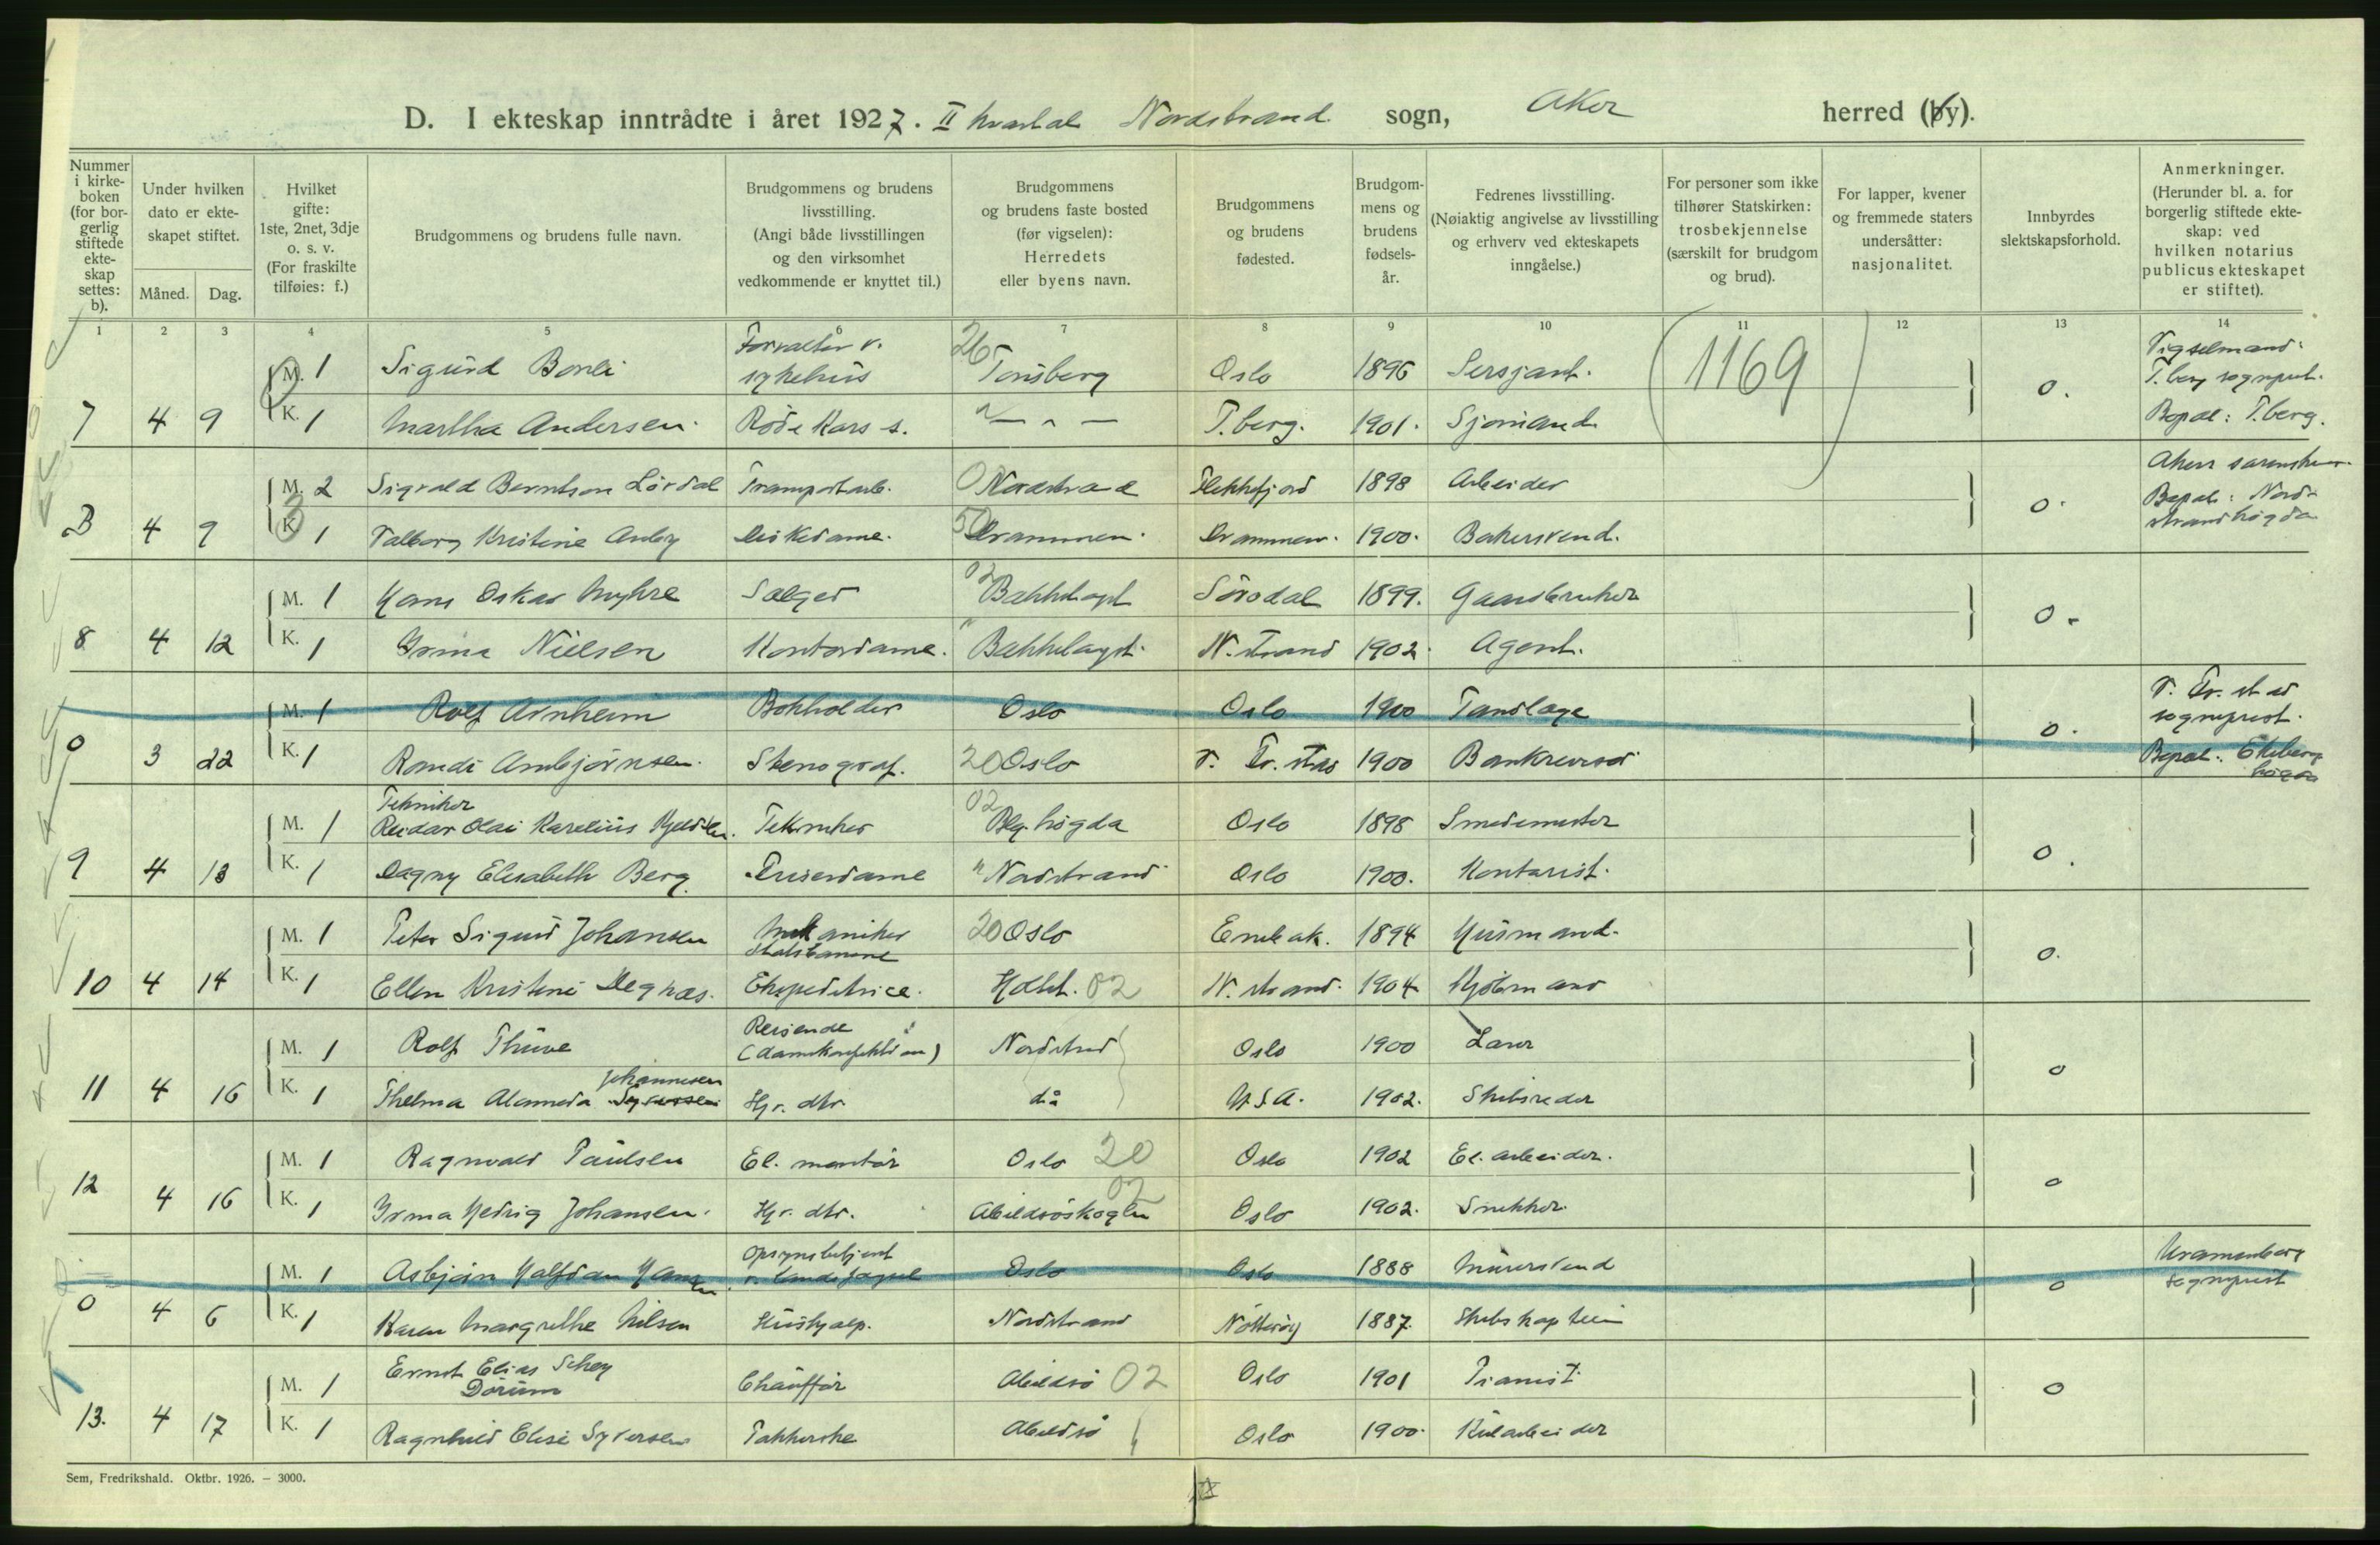 D. I ekteskap inntrådte i året 1927. II kvartal Nordstrand sogn, Aker herred (by).
Nummer i kirke-boken (for bor-gerlig stiftede ekte-skap settes: b).
Under hvilken dato er ekte-skapet stiftet.
Måned. Dag.
Hvilket gifte: 1ste, 2net, 3dje o. s. v. (For fraskilte tilføies: f.)
Brudgommens og brudens fulle navn.
Brudgommens og brudens livsstilling. (Angi både livsstillingen og den virksomhet vedkommende er knyttet til.)
Brudgommens og brudens faste bosted (før vigselen): Herredets eller byens navn.
Brudgommens og brudens fødested.
Brudgom-mens og brudens fødsels-år.
Fedrenes livsstilling. (Nøiaktig angivelse av livsstilling og erhverv ved ekteskapets inngåelse.)
For personer som ikke tilhører Statskirken: trosbekjennelse (særskilt for brudgom og brud).
For lapper, kvener og fremmede staters undersåtter: nasjonalitet.
Innbyrdes slektskapsforhold.
Anmerkninger. (Herunder bl. a. for borgerlig stiftede ekte-skap: ved hvilken notarius publicus ekteskapet er stiftet).
1 2 3 4 5 6 7 8 9 10 11 12 13 14
M. 1 Sigurd Forvalter v. sykehus 26 Tønsberg Oslo 1896 Sersjant. (1169) 0. Vigselmand: T.berg sognepr.
7 4 9 K. 1 Martha Andersen. Røde Kors s. — " — T.berg. 1901. Sjømand Bopæl: T.berg.
M. 2 Sigvald Berntson Lørdal Transportarb. 0 Nordstrand Flekkefjord 1898 Arbeider 0. Akers
B 4 9 K. 1 Valborg Kristine Diskedame. 50 Drammen. Drammen. 1900. Bakersvend. Bopæl: Nord-strandhøgda
M. 1 Hans Oskar Myhre Sælger 02 Bækkelaget Sørodal 1899. Gaardbruker 0.
8 4 12 K. 1 Irma Nielsen Kontordame. " Bækkelaget. N. strand 1902. Agent.
M. 1 Rolf Arnheim Bokholder Oslo Oslo 1900 Tandlæge 0. V. Fr. stad sogneprest.
0 3 22 K. 1 Randi Arnbjørnsen. Stenograf. 20 Oslo V. Fr. stad 1900 Bankrevisor Bopæl: Ekeberg høgda
Tekniker
M. 1 Reidar Olai Karelius Kjeldsen. Tekniker 02 Blg. høgda Oslo 1898 Smedemester 0.
9 4 13 K. 1 Dagny Elisabeth Berg. Friserdame " Nordstrand Oslo 1900. Kontorist.
M. 1 Peter Sigurd Johansen Mekaniker Statsbanene 20 Oslo Enebak. 1894 Husmand. 0.
10 4 14 K. 1 Ellen Kristine Degnæs. Ekspeditrice. 02 N. strand. 1904
M. 1 Rolf Thuve Reisende Nordstrand Oslo 1900 Lærer 0
11 4 16 K. 1 Thelma Alameda Johannesen Syversen Hj. dtr. do U.S.A. 1902. Skibsreder
M. 1 Ragnvald Paulsen El. montør Oslo 20 Oslo 1902 El. arbeider. 0
12 4 16 K. 1 Irma Hedvig Johansen. Hj. dtr. 02 Abildsøskogen Oslo 1902. Snekker
M. 1 Asbjørn Halfdan Hansen Opsynsbetjent v. Landsfængsel Oslo Oslo 1888 Murersvend 0 sogneprest
0 4 6 K. 1 Karen Margrethe Nilsen Hushjælp. Nordstrand Nøtterøy 1887. Skibskaptein
M. 1 Ernst Elias Schey Dørum Chauffør Abildsø 02 Oslo 1901 Pianist. 0
13. 4 17 K. 1 Ragnhild Elise Syversen Pakkerske Abildsø Oslo 1900. Kularbeider
Sem, Fredrikshald. Oktbr. 1926. — 3000.